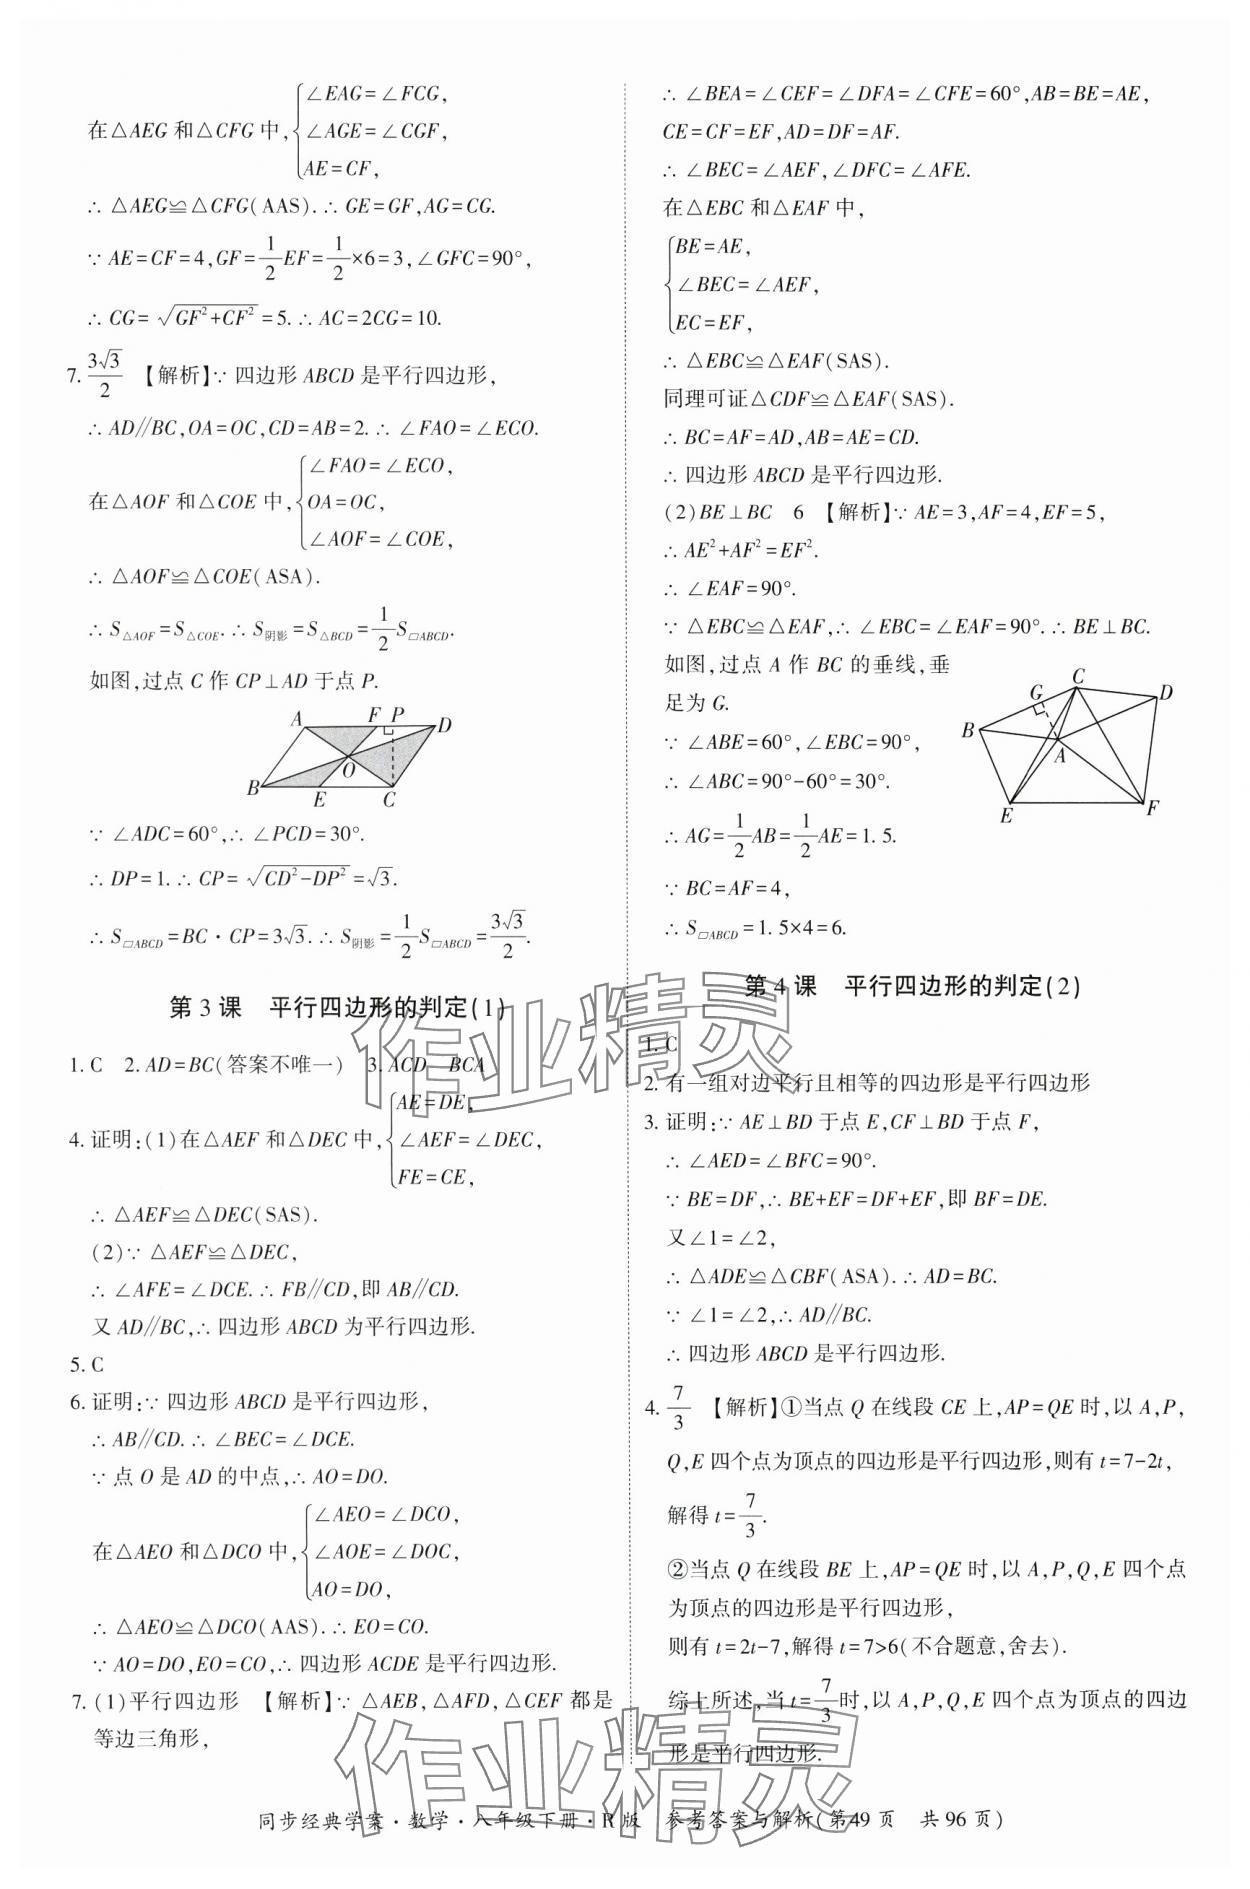 ∠EAG=∠FCG,
在△AEG 和△CFG 中, ∠AGE=∠CGF,
AE=CF,
∴ △AEG≌△CFG(AAS).∴ GE=GF,AG=CG.
∵ AE=CF=4,GF=1/2EF=1/2×6=3,∠GFC=90°,
∴ CG=√(GF²+CF²)=5.∴ AC=2CG=10.
7. 3√3/2 【解析】∵ 四边形 ABCD 是平行四边形,
∴ AD∥BC,OA=OC,CD=AB=2.∴ ∠FAO=∠ECO.
∠FAO=∠ECO,
在△AOF 和△COE 中, OA=OC,
∠AOF=∠COE,
∴ △AOF≌△COE(ASA).
∴ S△AOF=S△COE.∴ S阴影=S△BCD=1/2S▱ABCD.
如图,过点 C 作 CP⊥AD 于点 P.
A F P D
O
B E C
∵ ∠ADC=60°,∴ ∠PCD=30°.
∴ DP=1.∴ CP=√(CD²-DP²)=√3.
∴ S▱ABCD=BC·CP=3√3.∴ S阴影=1/2S▱ABCD=3√3/2.
第 3 课 平行四边形的判定(1)
1. C 2. AD=BC(答案不唯一) 3. ACD BCA
AE=DE,
4. 证明:(1)在△AEF 和△DEC 中, ∠AEF=∠DEC,
FE=CE,
∴ △AEF≌△DEC(SAS).
(2)∵ △AEF≌△DEC,
∴ ∠AFE=∠DCE.∴ FB∥CD,即 AB∥CD.
又 AD∥BC,∴ 四边形 ABCD 为平行四边形.
5. C
6. 证明:∵ 四边形 ABCD 是平行四边形,
∴ AB∥CD.∴ ∠BEC=∠DCE.
∵ 点 O 是 AD 的中点,∴ AO=DO.
∠AEO=∠DCO,
在△AEO 和△DCO 中, ∠AOE=∠DOC,
AO=DO,
∴ △AEO≌△DCO(AAS).∴ EO=CO.
∵ AO=DO,EO=CO,∴ 四边形 ACDE 是平行四边形.
7. (1)平行四边形 【解析】∵ △AEB,△AFD,△CEF 都是
等边三角形,
∴ ∠BEA=∠CEF=∠DFA=∠CFE=60°,AB=BE=AE,
CE=CF=EF,AD=DF=AF.
∴ ∠BEC=∠AEF,∠DFC=∠AFE.
在△EBC 和△EAF 中,
BE=AE,
∠BEC=∠AEF,
EC=EF,
∴ △EBC≌△EAF(SAS).
同理可证△CDF≌△EAF(SAS).
∴ BC=AF=AD,AB=AE=CD.
∴ 四边形 ABCD 是平行四边形.
(2)BE⊥BC 6 【解析】∵ AE=3,AF=4,EF=5,
∴ AE²+AF²=EF².
∴ ∠EAF=90°.
∵ △EBC≌△EAF,∴ ∠EBC=∠EAF=90°.∴ BE⊥BC.
如图,过点 A 作 BC 的垂线,垂
足为 G.
∵ ∠ABE=60°,∠EBC=90°,
∴ ∠ABC=90°-60°=30°.
∴ AG=1/2AB=1/2AE=1.5.
∵ BC=AF=4,
∴ S▱ABCD=1.5×4=6.
C
G D
B
A
E F
第 4 课 平行四边形的判定(2)
1. C
2. 有一组对边平行且相等的四边形是平行四边形
3. 证明:∵ AE⊥BD 于点 E,CF⊥BD 于点 F,
∴ ∠AED=∠BFC=90°.
∵ BE=DF,∴ BE+EF=DF+EF,即 BF=DE.
又∠1=∠2,
∴ △ADE≌△CBF(ASA).∴ AD=BC.
∵ ∠1=∠2,∴ AD∥BC.
∴ 四边形 ABCD 是平行四边形.
4. 7/3 【解析】①当点 Q 在线段 CE 上,AP=QE 时,以 A,P,
Q,E 四个点为顶点的四边形是平行四边形,则有 t=7-2t,
解得 t=7/3.
②当点 Q 在线段 BE 上,AP=QE 时,以 A,P,Q,E 四个点
为顶点的四边形是平行四边形,
则有 t=2t-7,解得 t=7>6(不合题意,舍去).
综上所述,当 t=7/3时,以 A,P,Q,E 四个点为顶点的四边
形是平行四边形.
同步经典学案·数学·八年级下册·R 版 参考答案与解析(第 49 页 共 96 页)
作业精灵
作业精灵